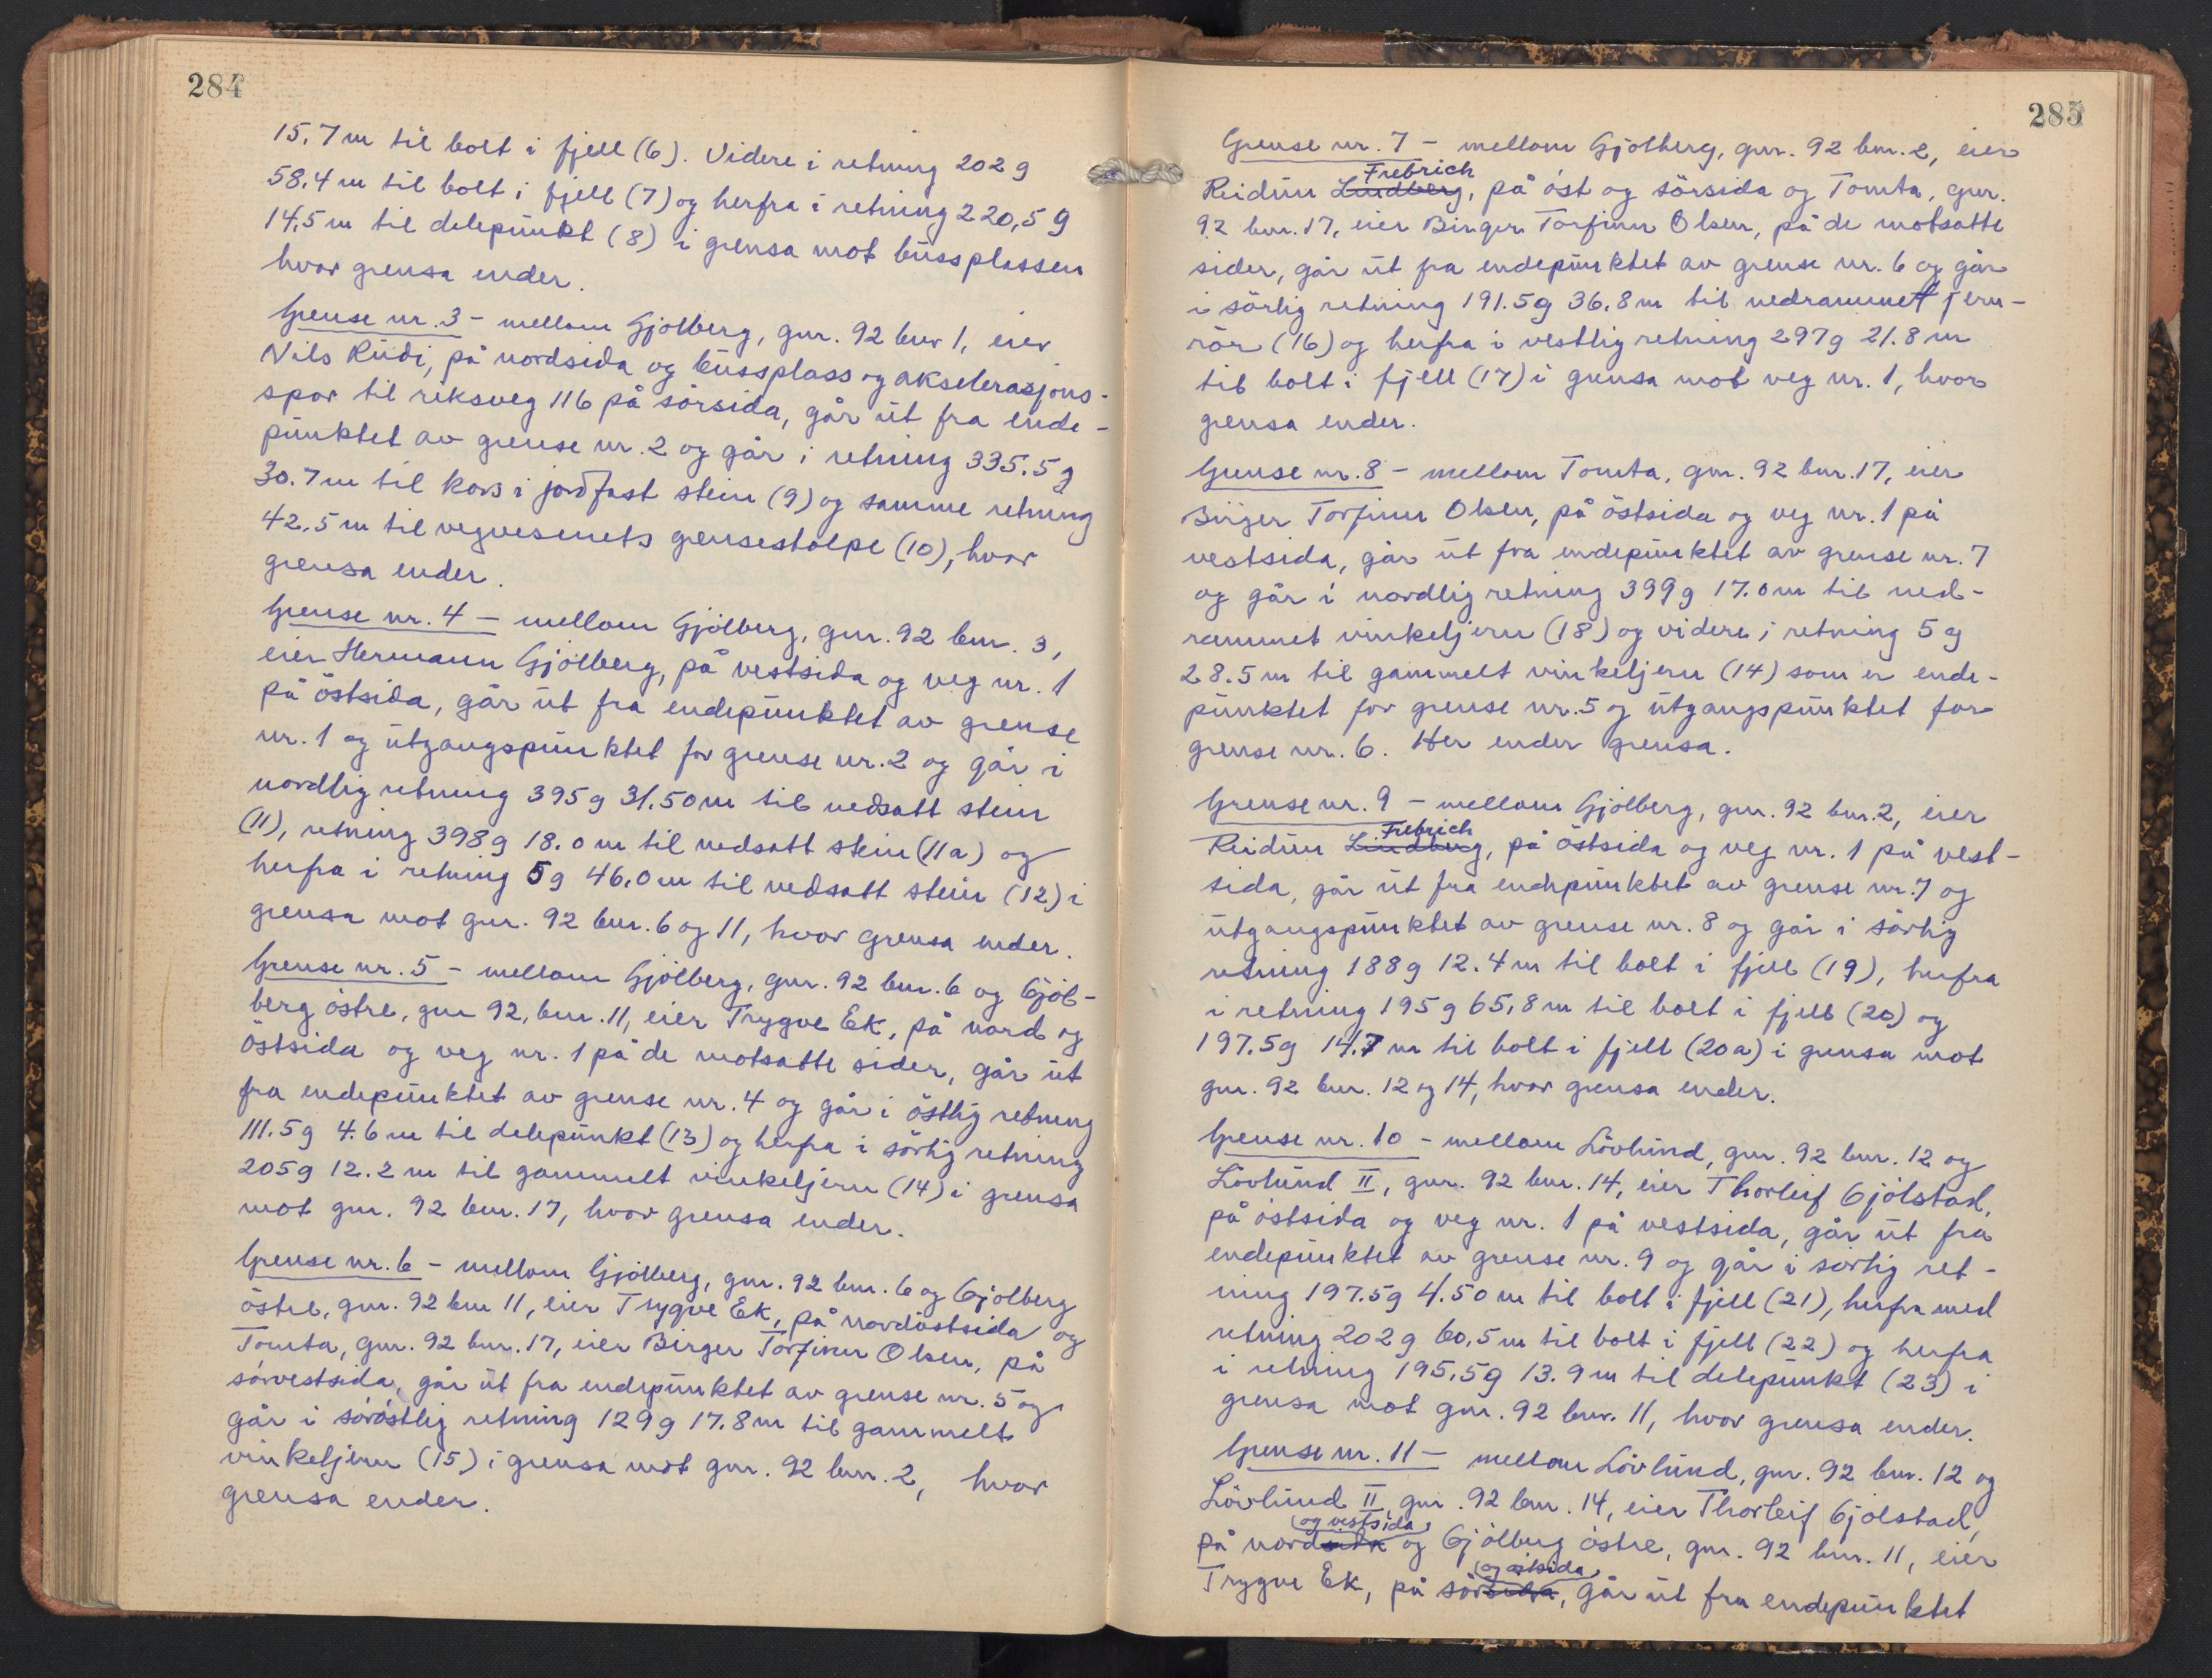 284
15.7 m til bolt i fjell (6). Videre i retning 202 g
58.4 m til bolt i fjell (7) og herfra i retning 220,5 g
14,5 m til delepunkt (8) i grensa mot bussplassen
hvor grensa ender.
Grense nr. 3 - mellom Gjølberg, gnr. 92 bnr 1, eier
Nils Rudi, på nordsida og bussplass og akselerasjons-
spor til riksveg 116 på sørsida, går ut fra ende-
punktet av grense nr. 2 og går i retning 335.5 g
30.7 m til kors i jordfast stein (9) og samme retning
42.5 m til vegvesenets grensestolpe (10), hvor
grensa ender.
Grense nr. 4 - mellom Gjølberg, gnr. 92 bnr. 3,
eier Hermann Gjølberg, på vestsida og veg nr. 1
på östsida, går ut fra endepunktet av grense
nr. 1 og utgangspunktet for grense nr. 2 og går i
nordlig retning 395 g 31.50 m til nedsatt stein
(11), retning 398 g 18.0 m til nedsatt stein (11a) og
herfra i retning 5 g 46.0 m til nedsatt stein (12) i
grensa mot gnr. 92 bnr. 6 og 11, hvor grensa ender.
Grense nr. 5 - mellom Gjölberg, gnr. 92 bnr. 6 og Gjöl-
berg östre, gnr 92, bnr. 11, eier Trygve Ek, på nord og
östsida og veg nr. 1 på de motsatte sider, går ut
fra endepunktet av grense nr. 4 og går i östlig retning
111.5 g 4.6 m til delepunkt (13) og herfra i sørlig retning
205 g 12.2 m til gammelt vinkeljern (14) i grensa
mot gnr. 92 bnr. 17, hvor grensa ender.
Grense nr. 6 - mellom Gjölberg, gnr. 92 bnr. 6 og Gjølberg
östre, gnr. 92 bnr 11, eier Trygve Ek, på nordöstsida og
Tomta, gnr. 92 bnr. 17, eier Birger Torfinn Olsen, på
sørvestsida, går ut fra endepunktet av grense nr. 5 og
går i søröstlig retning 129 g 17.8 m til gammelt
vinkeljern (15) i grensa mot gnr. 92 bnr. 2, hvor
grensa ender.
285
Grense nr. 7 - mellom Gjølberg, gnr. 92 bnr. 2, eier
Frebrich
Reidun Lindberg, på öst og sörsida og Tomta, gnr.
92 bnr. 17, eier Birger Torfinn Olsen, på de motsatte
sider, går ut fra endepunktet av grense nr. 6 og går
i sörlig retning 191.5 g 36.8 m til nedrammet jern-
rör (16) og herfra i vestlig retning 297 g 21.8 m
til bolt i fjell (17) i grensa mot veg nr. 1, hvor
grensa ender.
Grense nr. 8 - mellom Tomta, gnr. 92 bnr. 17, eier
Birger Torfinn Olsen, på östsida og veg nr. 1 på
vestsida, går ut fra endepunktet av grense nr. 7
og går i nordlig retning 399 g 17.0 m til ned-
rammet vinkeljern (18) og videre i retning 5 g
28.5 m til gammelt vinkeljern (14) som er ende-
punktet for grense nr. 5 og utgangspunktet for
grense nr. 6. Her ender grensa.
Grense nr. 9 - mellom Gjölberg, gnr. 92 bnr. 2, eier
Frebrich
Reidun Lindberg, på östsida og veg nr. 1 på vest-
sida, går ut fra endepunktet av grense nr. 7 og
utgangspunktet av grense nr. 8 og går i sörlig
retning 188 g 12.4 m til bolt i fjell (19), herfra
i retning 195 g 65,8 m til bolt i fjell (20) og
197.5 g 14.7 m til bolt i fjell (20a) i grensa mot
gnr. 92 bnr. 12 og 14, hvor grensa ender.
Grense nr. 10 - mellom Lövlund, gnr. 92 bnr. 12 og
Lövlund II, gnr. 92 bnr. 14, eier Thorleif Gjölstad,
på östsida og veg nr. 1 på vestsida, går ut fra
endepunktet av grense nr. 9 og går i sörlig ret-
ning 197.5 g 4.50 m til bolt i fjell (21), herfra med
retning 202 g 60,5 m til bolt i fjell (22) og herfra
i retning 195,5 g 13.9 m til delepunkt (23) i
grensa mot gnr. 92 bnr. 11, hvor grensa ender.
Grense nr. 11 - mellom Lövlund, gnr. 92 bnr. 12 og
Lövlund II, gnr. 92 bnr. 14, eier Thorleif Gjölstad,
og vestsida
på nordsida og Gjölberg östre, gnr. 92 bnr. 11, eier
og östsida
Trygve Ek, på sørsida, går ut fra endepunktet